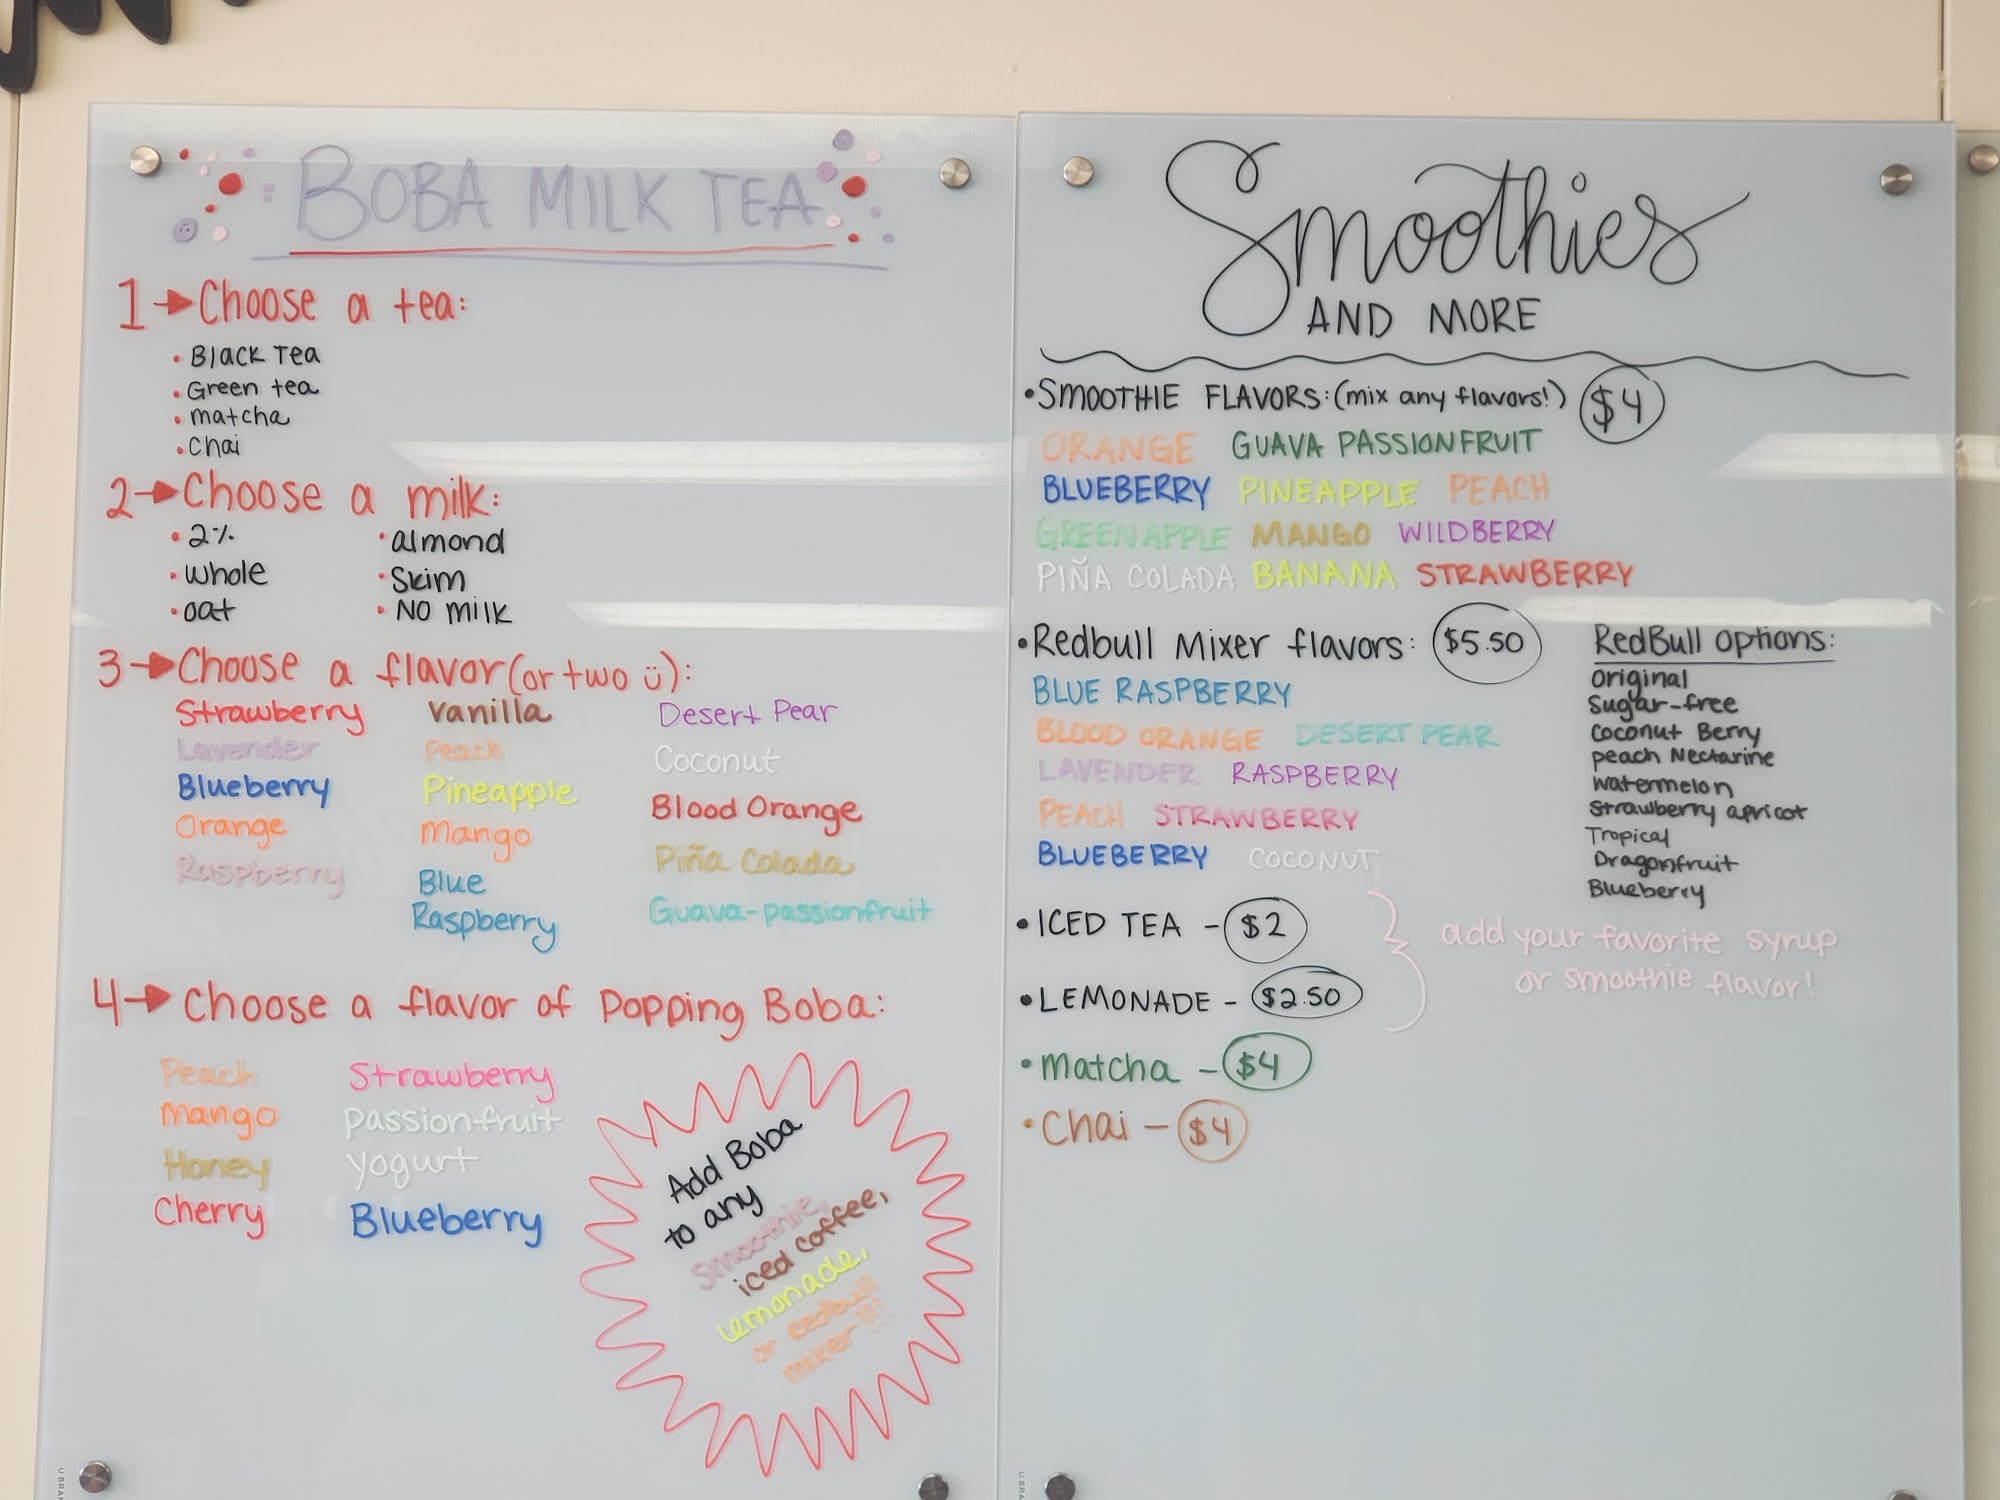 BOBA MILK TEA
1→Choose a tea:
• Black Tea
• Green tea
• matcha
• Chai
2→Choose a milk:
• 2% • almond
• whole • Skim
• oat • NO milk
3→Choose a flavor (or two ü):
Strawberry vanilla Desert Pear
Lavender Peach Coconut
Blueberry Pineapple Blood Orange
Orange Mango Piña Colada
Raspberry Blue Raspberry Guava-passionfruit
4→Choose a flavor of Popping Boba:
Peach Strawberry
Mango passionfruit
Honey yogurt
Cherry Blueberry
Add Boba
to any
smoothie,
iced coffee,
lemonade,
or redbull
mixer!!!!
Smoothies
AND MORE
• SMOOTHIE FLAVORS: (mix any flavors!) $4
ORANGE GUAVA PASSIONFRUIT
BLUEBERRY PINEAPPLE PEACH
GREEN APPLE MANGO WILDBERRY
PIÑA COLADA BANANA STRAWBERRY
• Redbull Mixer flavors: $5.50
BLUE RASPBERRY
BLOOD ORANGE DESERT PEAR
LAVENDER RASPBERRY
PEACH STRAWBERRY
BLUEBERRY COCONUT
RedBull options:
original
Sugar-free
Coconut Berry
peach Nectarine
watermelon
Strawberry apricot
Tropical
Dragonfruit
Blueberry
• ICED TEA - $2
• LEMONADE - $2.50
add your favorite syrup
or smoothie flavor!
• matcha - $4
• Chai - $4